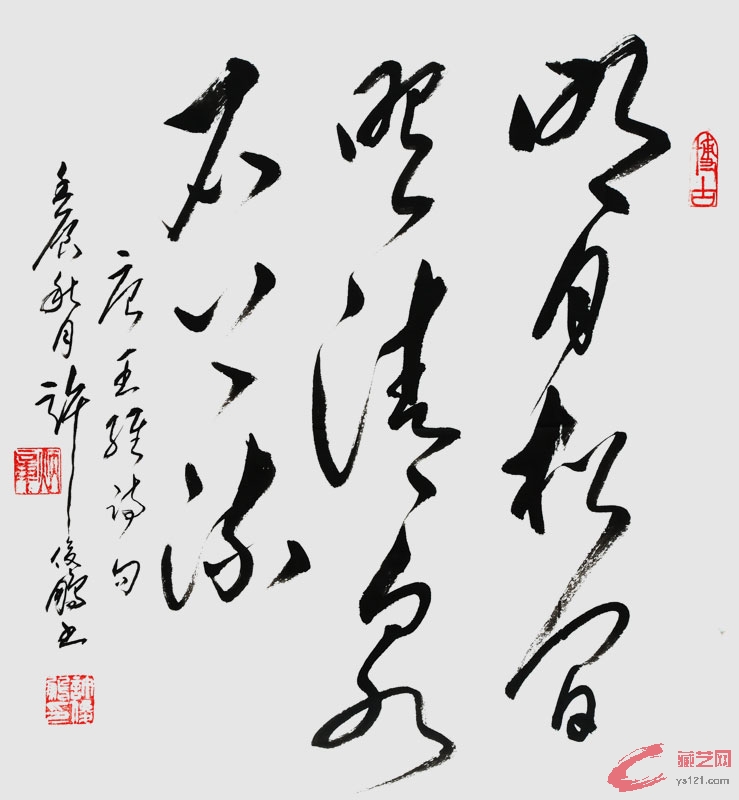 博古
明月松间
照清泉
石上流
唐王维诗句
壬辰秋月许俊鹏书
許俊鵬印
藏艺网
ys121.com